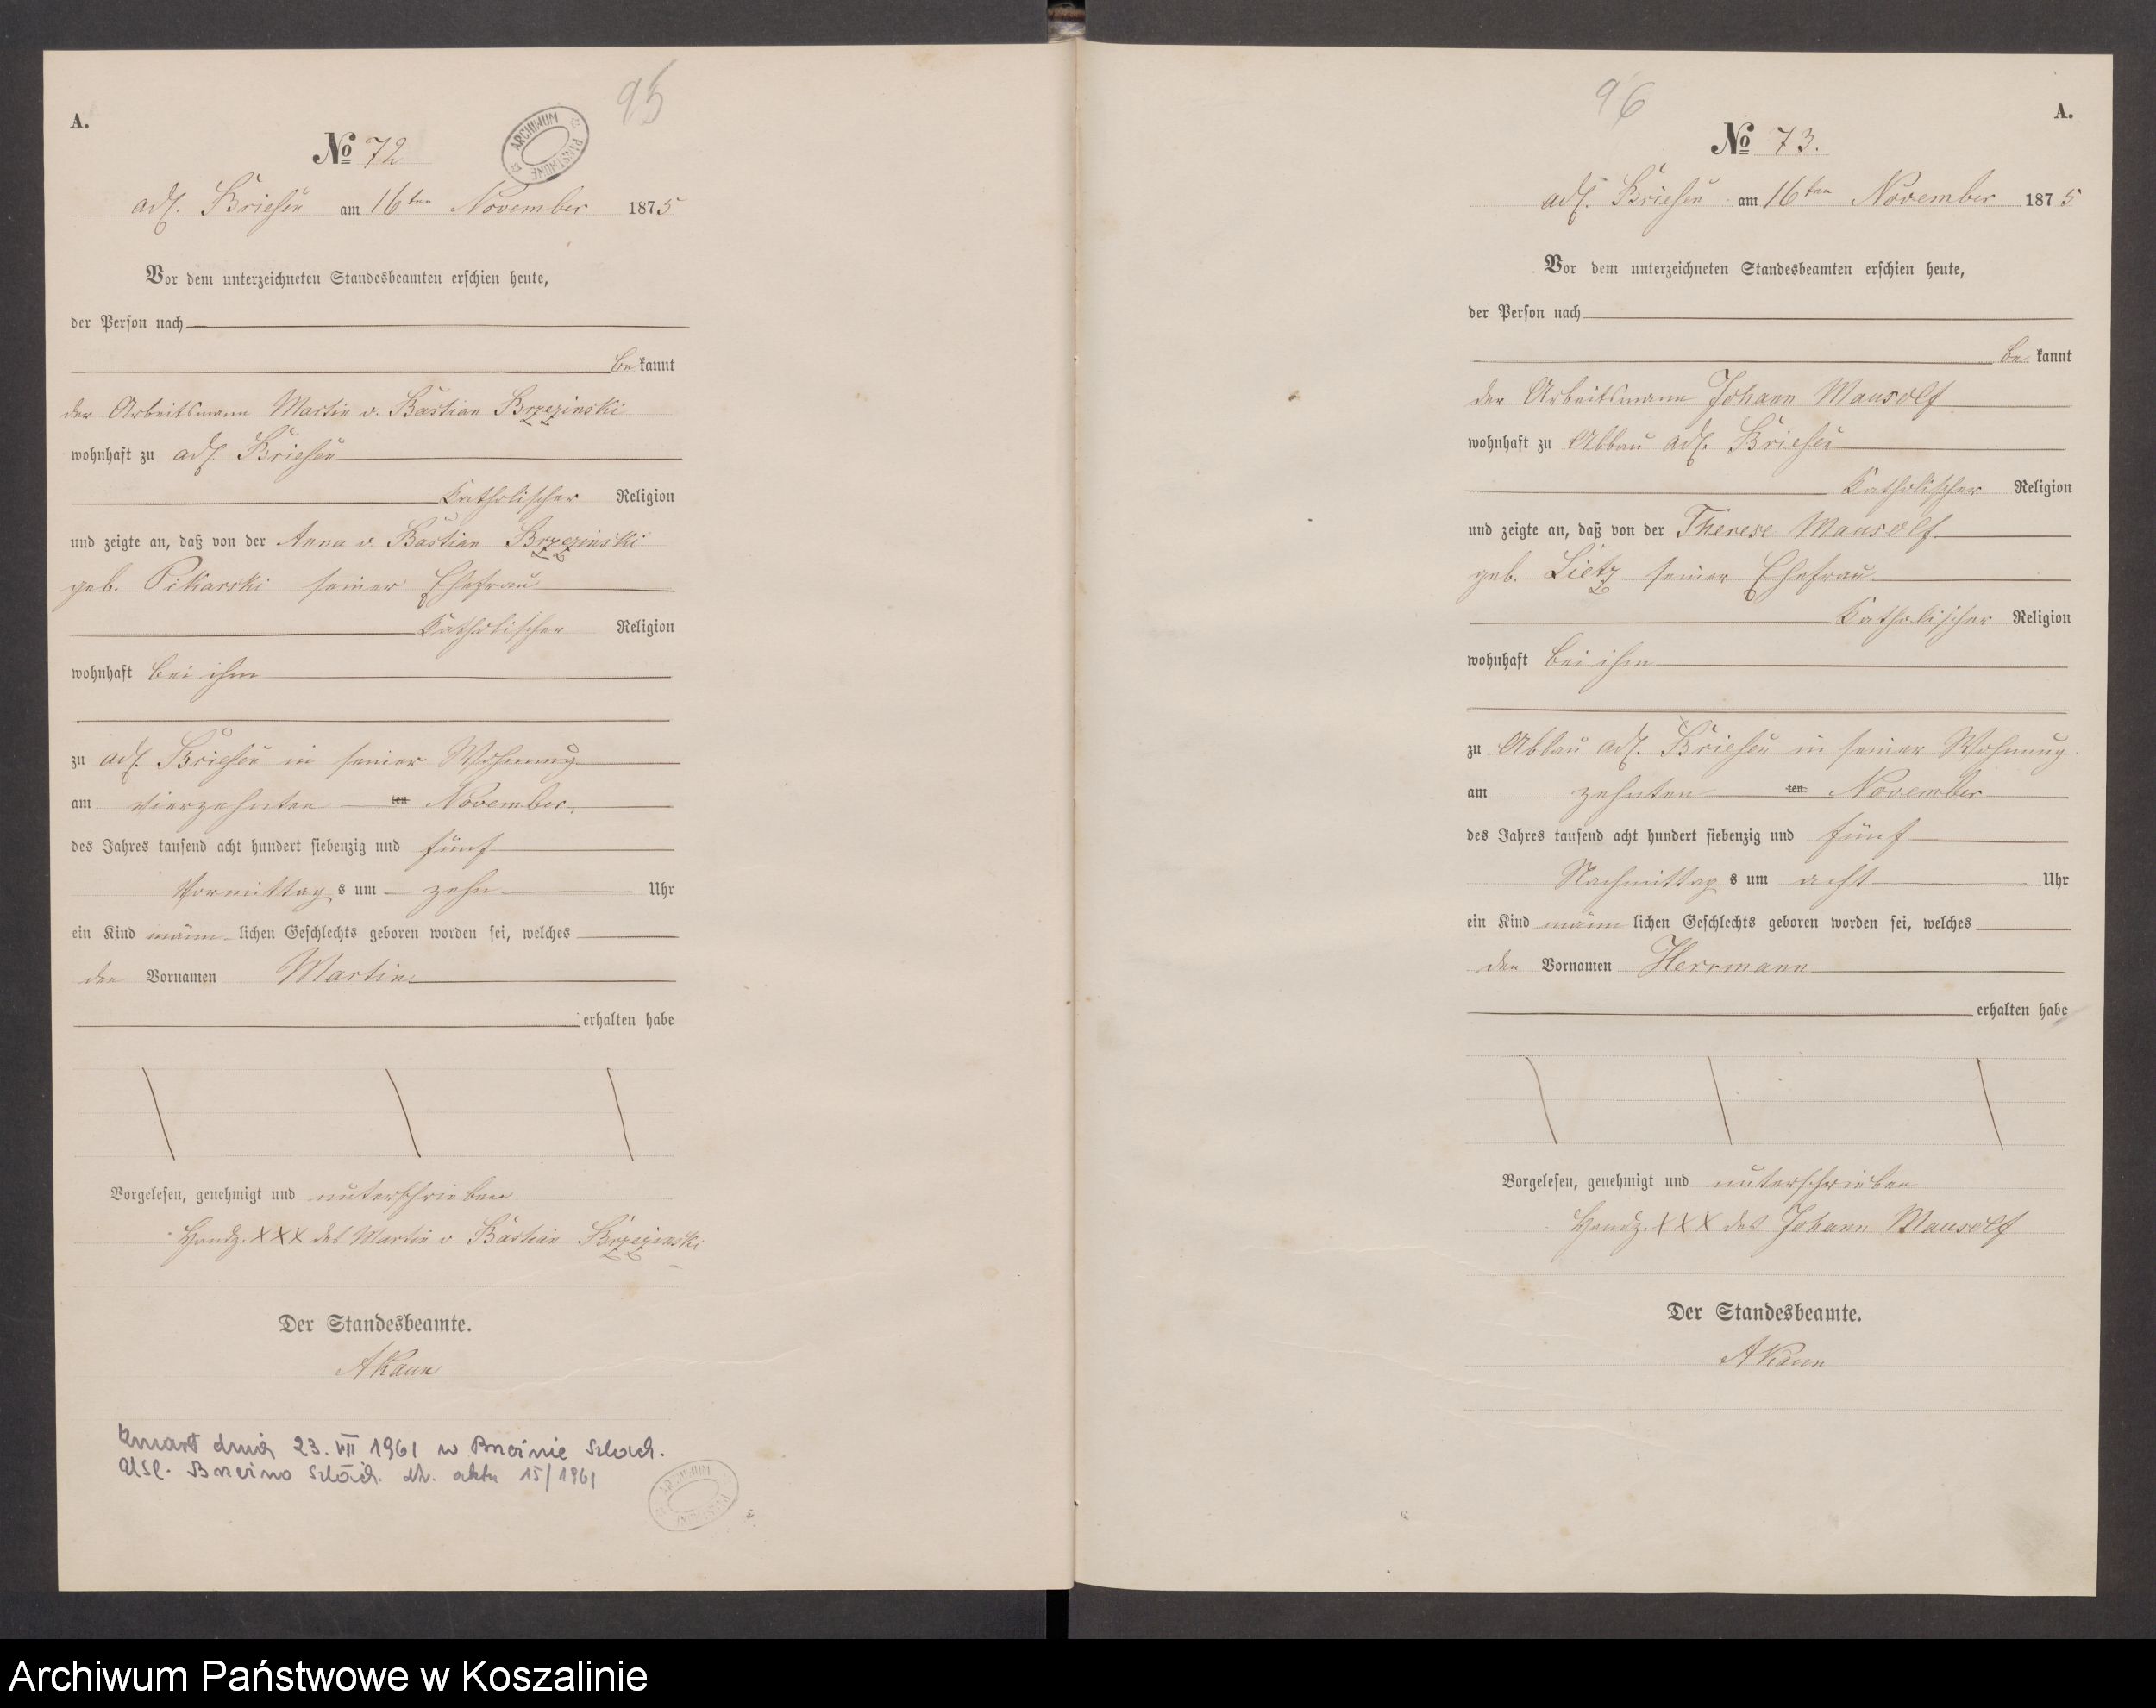 95
A.
No 72
ARCHIWUM PAŃSTWOWE
adl. Briesen am 16ten November 1875
Vor dem unterzeichneten Standesbeamten erschien heute,
der Person nach
be kannt
der Arbeitsmann Martin v. Bastian Brzezinski
wohnhaft zu adl. Briesen
katholischer Religion
und zeigte an, daß von der Anna v. Bastian Brzezinski
geb. Pikarski seiner Ehefrau
katholischer Religion
wohnhaft bei ihm
zu adl. Briesen in seiner Wohnung
am vierzehnten ten November,
des Jahres tausend acht hundert siebenzig und fünf
Vormittag s um zehn Uhr
ein Kind männ lichen Geschlechts geboren worden sei, welches
den Vornamen Martin
erhalten habe
Vorgelesen, genehmigt und unterschrieben
Handz. XXX des Martin v Bastian Brzezinski
Der Standesbeamte.
AKaun
Zmarł dnia 23. VII 1961 w Brzeźnie Szlach.
USC. Brzeźno Szlach. aktu 15/1961
ARCHIWUM
96
A.
No 73.
adl. Briesen am 16ten November 1875
Vor dem unterzeichneten Standesbeamten erschien heute,
der Person nach
be kannt
der Arbeitsmann Johann Mausolf
wohnhaft zu Abbau adl. Briesen
katholischer Religion
und zeigte an, daß von der Therese Mausolf
geb. Lietz seiner Ehefrau
katholischer Religion
wohnhaft bei ihm
zu Abbau adl. Briesen in seiner Wohnung
am zehnten ten November
des Jahres tausend acht hundert siebenzig und fünf
Nachmittag s um acht Uhr
ein Kind männ lichen Geschlechts geboren worden sei, welches
den Vornamen Herrmann
erhalten habe
Vorgelesen, genehmigt und unterschrieben
Handz. XXX des Johann Mausolf
Der Standesbeamte.
AKaun
Archiwum Państwowe w Koszalinie